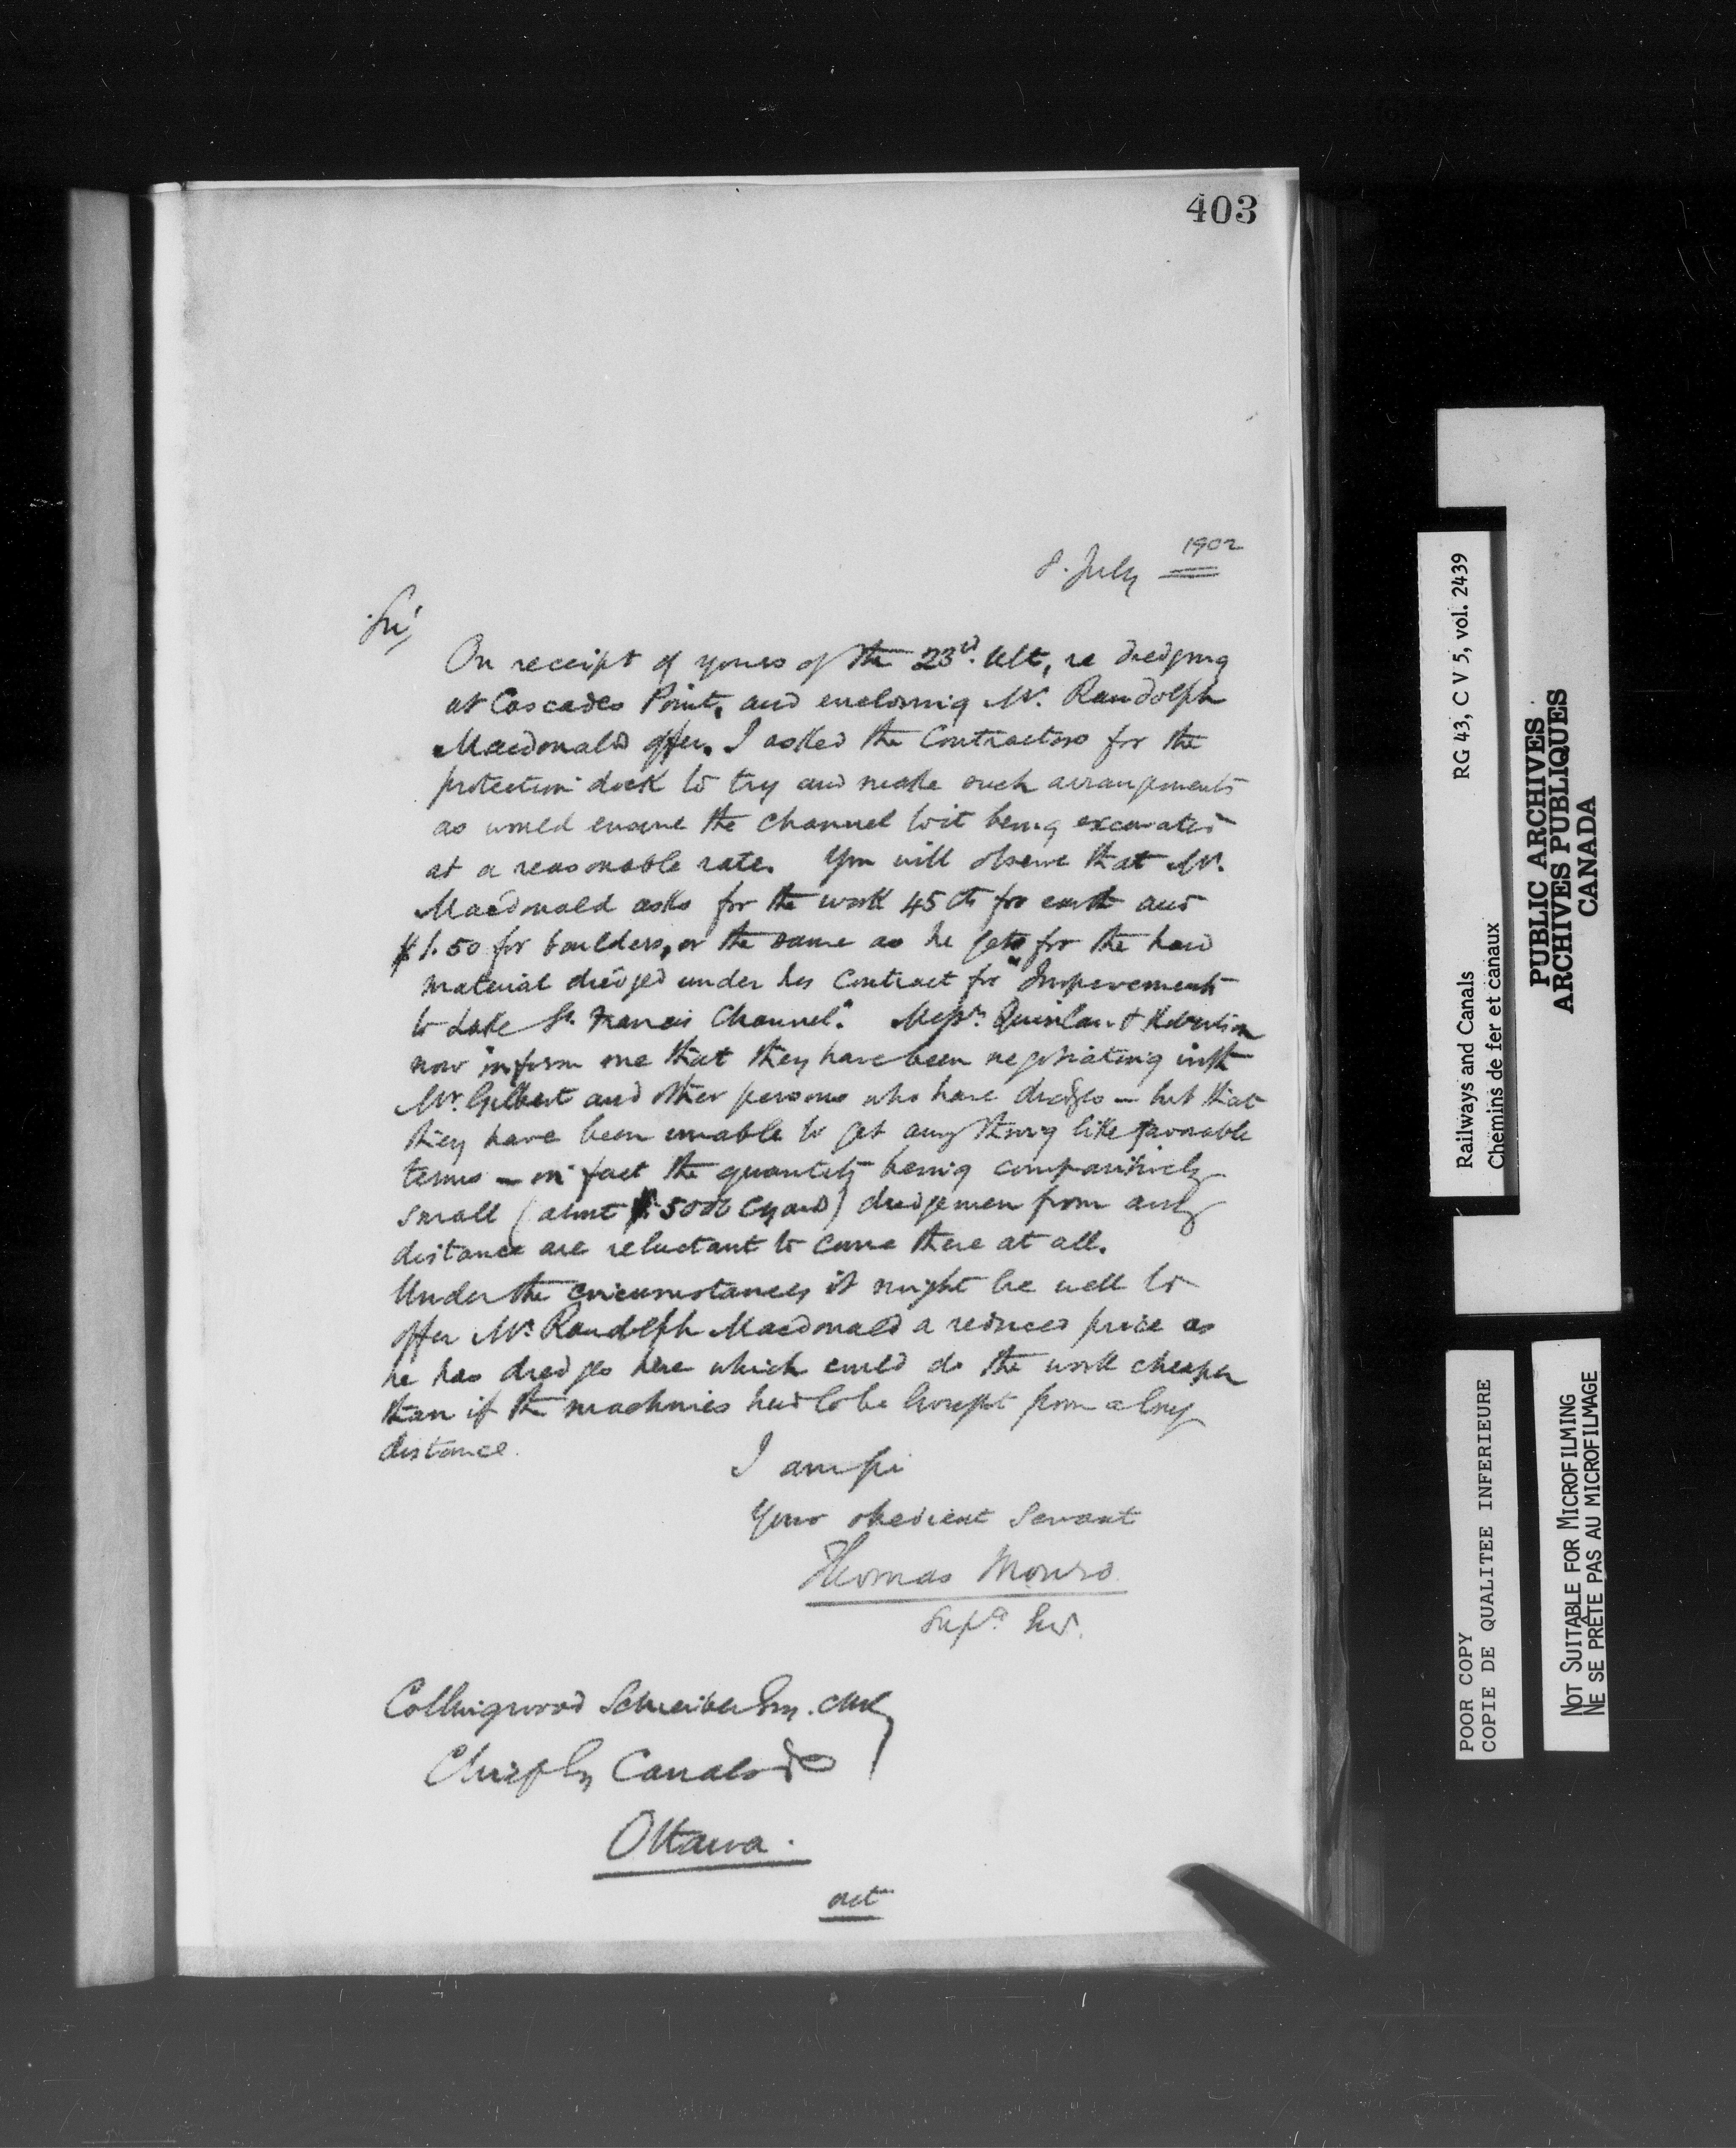 403
8. July 1902
Sir,
On receipt of yours of the 23rd. ult, re dredging
at Cascades Point, and enclosing Mr. Randolph
Macdonalds offer. I asked the Contractors for the
protection dock to try and make such arrangements
as would ensure the channel to it being excavated
at a reasonable rate. You will observe that Mr.
Macdonald asks for the work 45 cts for earth and
$1.50 for boulders, or the same as he gets for the hard
material dredged under his Contract for "Improvements
to Lake St. Francis Channel". Messrs. Quinlan & Robertson
now inform me that they have been negotiating with
Mr. Gilbert and other persons who have dredges — but that
they have been unable to get anything like favorable
terms — in fact the quantity being comparitively
small (about 5000 Cyards) dredgemen from any
distance are reluctant to come there at all.
Under the circumstances it might be well to
offer Mr. Randolph Macdonald a reduced price as
he has dredges here which could do the work cheaper
than if the machines had to be brought from a long
distance.
I am Sir
Your obedient Servant
Thomas Monro
Supg. Eng.
Collingwood Schreiber Esq. CMG,
Chief Eng Canals &c
Ottawa.
Railways and Canals RG 43, C V 5, vol. 2439
Chemins de fer et canaux
PUBLIC ARCHIVES
ARCHIVES PUBLIQUES
CANADA
POOR COPY
COPIE DE QUALITEE INFERIEURE
NOT SUITABLE FOR MICROFILMING
NE SE PRÊTE PAS AU MICROFILMAGE